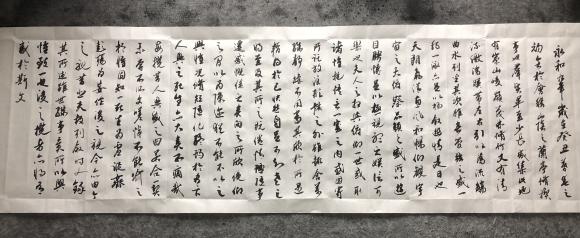 永和九年歲在癸丑暮春之
初會於會稽山陰之蘭亭脩禊
事也羣賢畢至少長咸集此地
有崇山峻領茂林脩竹又有清
流激湍暎帶左右引以為流觴
曲水列坐其次雖無絲竹管弦之盛一
觴一詠亦足以暢敘幽情是日也
天朗氣清惠風和暢仰觀宇
宙之大俯察品類之盛所以遊
目騁懷足以極視聽之娛信可
樂也夫人之相與俯仰一世或取
諸懷抱悟言一室之內或因寄
所託放浪形骸之外雖趣舍萬
殊靜躁不同當其欣於所遇
暫得於己快然自足不知老之
將至及其所之既倦情隨事
遷感慨係之矣向之所欣俛仰
之間以為陳迹猶不能不以之
興懷況脩短隨化終期於盡古
人云死生亦大矣豈不痛哉
每攬昔人興感之由若合一契
未嘗不臨文嗟悼不能喻之
於懷固知一死生為虛誕齊
彭殤為妄作後之視今亦由今
之視昔悲夫故列敘時人錄
其所述雖世殊事異所以興
懷其致一也後之攬者亦將有
感於斯文